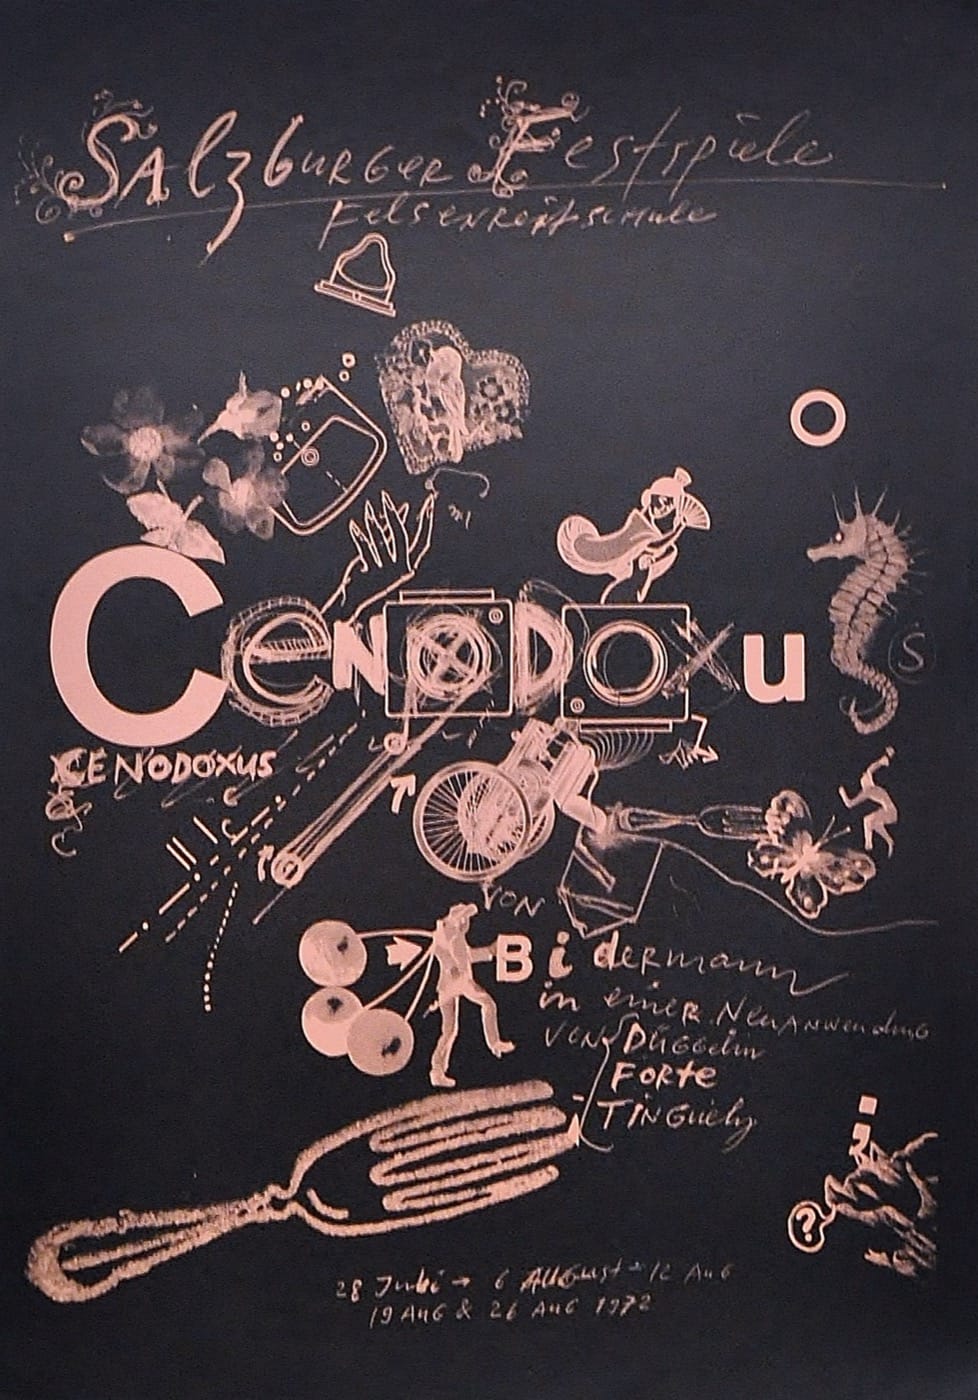 Salzburger Festspiele
Felsenreitschule
O
CENODOXU
S
CENODOXUS
VON
Bidermann
in einer Neuanwendung
VON Düggelin
Forte
Tinguely
?
28 Juli → 6 August - 12 Aug
19 Aug & 26 Aug 1972